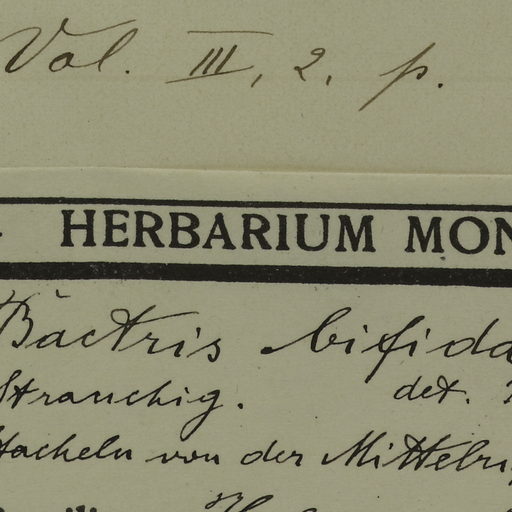 Vol. III, 2. p.
HERBARIUM MON
Bactris bifida
Strauchig. det.
Stacheln von der Mittelri